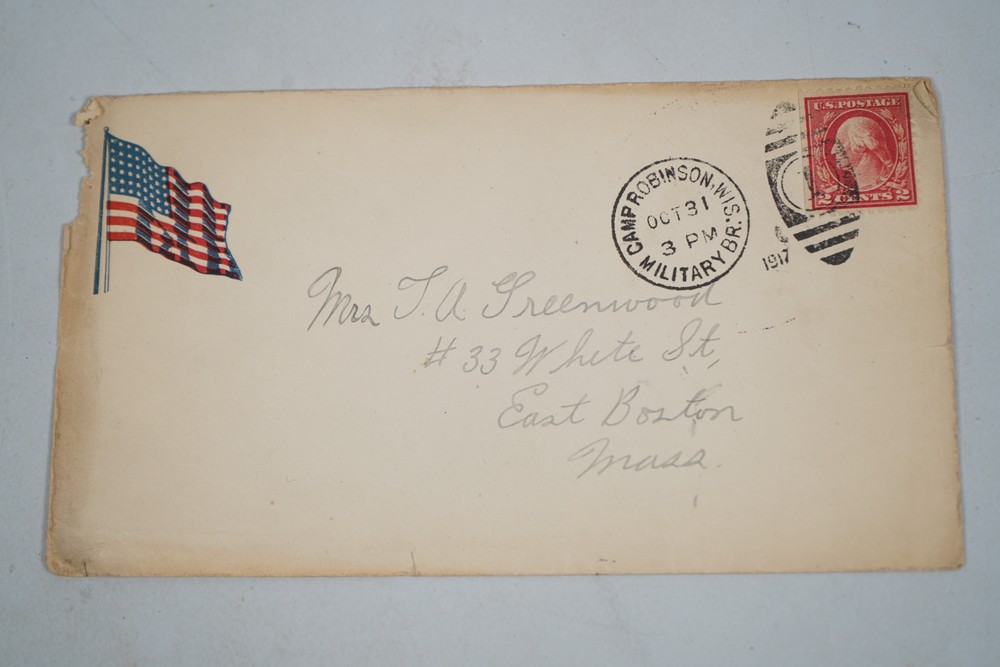 U.S. POSTAGE
2 CENTS 2
CAMP ROBINSON, WIS.
OCT 31
3 PM
MILITARY BR.
1917
Mrs T. A. Greenwood
# 33 White St,
East Boston
Mass.